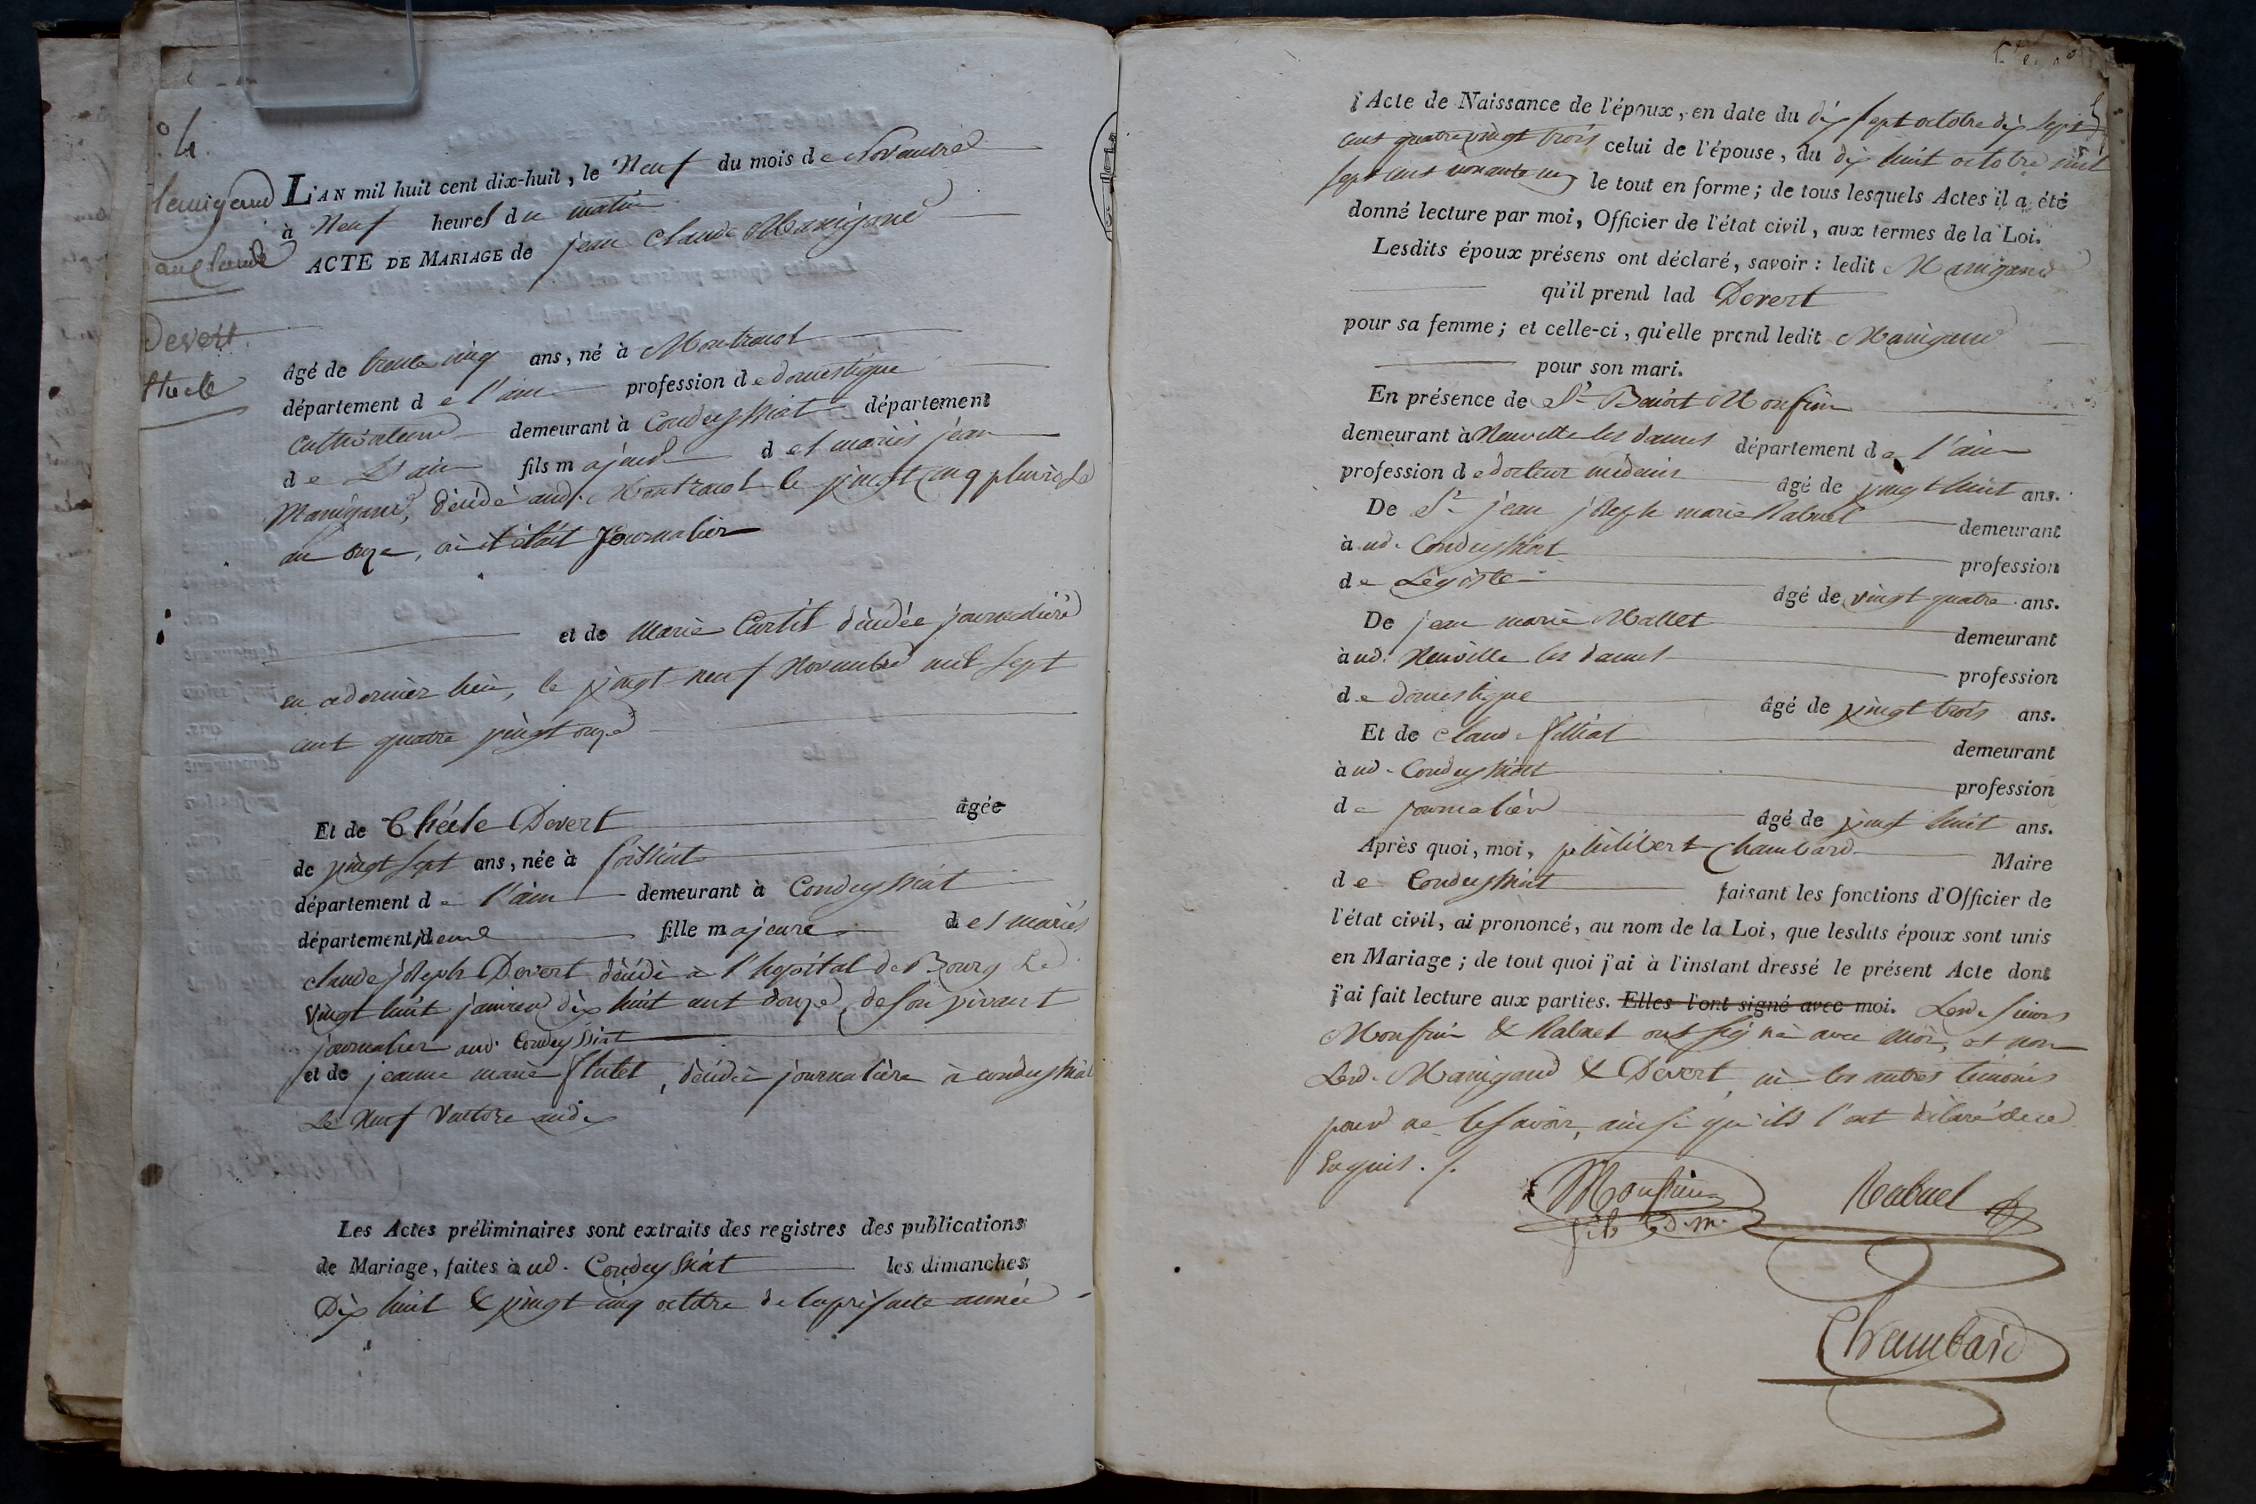 4.
Manigand
Jean Claude
Devert
Thècle
L'AN mil huit cent dix-huit, le Neuf du mois de Novembre
à Neuf heures du matin
ACTE DE MARIAGE de jean Claude Manigand
âgé de trente cinq ans, né à Montracol
département de l'ain profession de domestique
cultivateur demeurant à Condeyssiat département
de L'ain fils majeur des mariés jean
Manigand, décédé aud. Montracol le vingt cinq pluviôse
an onze, où il était Journalier
et de Marie Curtil décédée journalière
en ce dernier lieu, le vingt neuf Novembre mil sept
cent quatre vingt onze
Et de Thècle Devert âgée
de vingt sept ans, née à foissiat
département de l'ain demeurant à Condeyssiat
département idem fille majeure des mariés
claude joseph Devert décédé à l'hopital de Bourg Le
vingt huit janvier dix huit cent douze, de son vivant
journalier aud. Condeyssiat
et de jeanne marie flutet, décédée journalière à condeyssiat
Le Neuf octobre
Les Actes préliminaires sont extraits des registres des publications
de Mariage, faites aud. Condeyssiat les dimanches
Dix huit & vingt cinq octobre de la présente année
l'Acte de Naissance de l'époux, en date du dix sept octobre dix sept
cent quatre vingt trois celui de l'épouse, du dix huit octobre mil
sept cent nonante un le tout en forme; de tous lesquels Actes il a été
donné lecture par moi, Officier de l'état civil, aux termes de la Loi.
Lesdits époux présens ont déclaré, savoir: ledit Manigand
qu'il prend lad Devert
pour sa femme; et celle-ci, qu'elle prend ledit Manigand
pour son mari.
En présence de Sr Benoit Monfrin
demeurant à Neuville les dames département de l'ain
profession de docteur médecin âgé de vingt huit ans.
De Sr jean joseph marie Rabuel demeurant
aud. Condeyssiat profession
de Légiste âgé de vingt quatre ans.
De jean marie Mallet demeurant
aud. Neuville les dames profession
de domestique âgé de vingt trois ans.
Et de claude filliat demeurant
aud. Condeyssiat profession
de journalier âgé de vingt huit ans.
Après quoi, moi, philibert Chambard Maire
de Condeyssiat faisant les fonctions d'Officier de
l'état civil, ai prononcé, au nom de la Loi, que lesdits époux sont unis
en Mariage; de tout quoi j'ai à l'instant dressé le présent Acte dont
j'ai fait lecture aux parties. Elles l'ont signé avec moi. Lesd. sieurs
Monfrin & Rabuel ont signé avec moi, et non
Lesd. Manigand & Devert, ni les autres témoins
pour ne le savoir, ainsi qu'ils l'ont déclaré de ce
Enquis.
Monfrin Rabuel
fils D. m.
Chambard